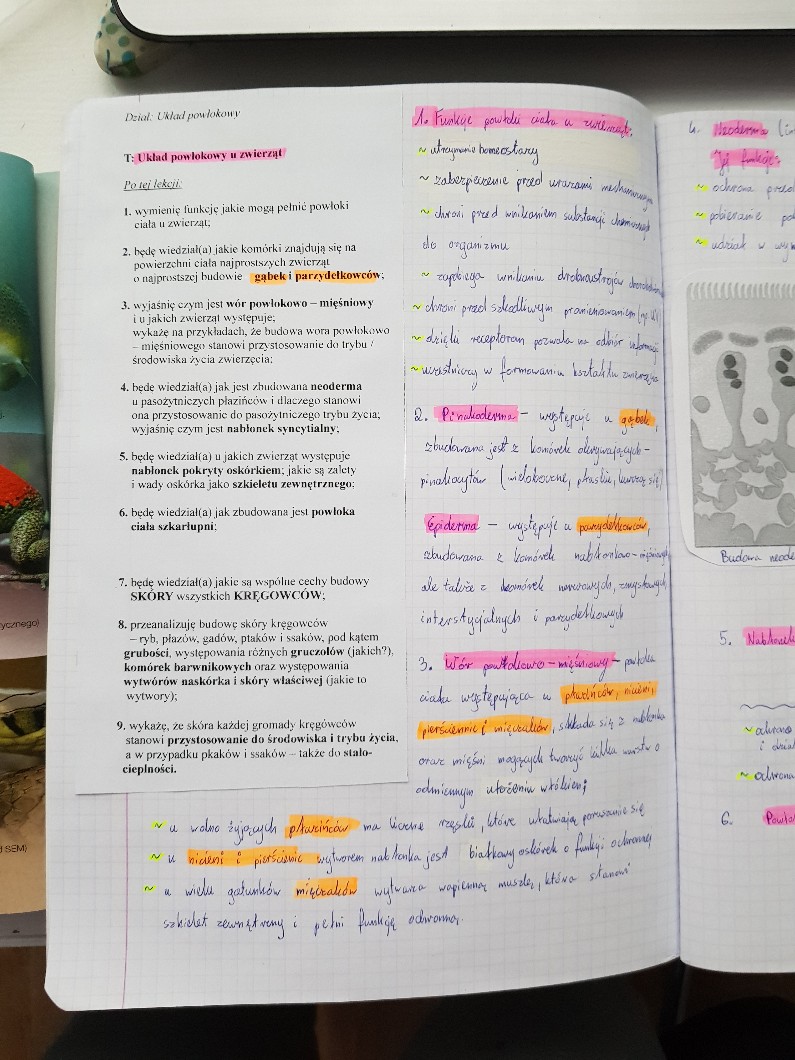 Dział: Układ powłokowy
T: Układ powłokowy u zwierząt
Po tej lekcji:
1. wymienię funkcję jakie mogą pełnić powłoki
ciała u zwierząt;
2. będę wiedział(a) jakie komórki znajdują się na
powierzchni ciała najprostszych zwierząt
o najprostszej budowie gąbek i parzydełkowców;
3. wyjaśnię czym jest wór powłokowo – mięśniowy
i u jakich zwierząt występuje;
wykażę na przykładach, że budowa wora powłokowo
– mięśniowego stanowi przystosowanie do trybu /
środowiska życia zwierzęcia;
4. będę wiedział(a) jak jest zbudowana neoderma
u pasożytniczych płazińców i dlaczego stanowi
ona przystosowanie do pasożytniczego trybu życia;
wyjaśnię czym jest nabłonek syncytialny;
5. będę wiedział(a) u jakich zwierząt występuje
nabłonek pokryty oskórkiem; jakie są zalety
i wady oskórka jako szkieletu zewnętrznego;
6. będę wiedział(a) jak zbudowana jest powłoka
ciała szkarłupni;
7. będę wiedział(a) jakie są wspólne cechy budowy
SKÓRY wszystkich KRĘGOWCÓW;
8. przeanalizuję budowę skóry kręgowców
– ryb, płazów, gadów, ptaków i ssaków, pod kątem
grubości, występowania różnych gruczołów (jakich?),
komórek barwnikowych oraz występowania
wytworów naskórka i skóry właściwej (jakie to
wytwory);
9. wykażę, że skóra każdej gromady kręgowców
stanowi przystosowanie do środowiska i trybu życia,
a w przypadku pkaków i ssaków – także do stało-
cieplności.
1. Funkcje powłoki ciała u zwierząt:
~ utrzymanie homeostazy
~ zabezpieczenie przed urazami mechanicznymi
~ chroni przed wnikaniem substancji chemicznych
do organizmu
~ zapobiega wnikaniu drobnoustrojów
~ chroni przed szkodliwym promieniowaniem (np. UV)
~ dzięki receptorom pozwala na odbiór informacji
~ uczestniczy w formowaniu kształtu zwierzęcia
2. Pinakoderma – występuje u gąbek,
zbudowana jest z komórek okrywających –
pinakocytów (wieloboczne, płaskie, kurczą się)
Epiderma – występuje u parzydełkowców,
zbudowana z komórek nabłonkowo-mięśniowych
ale także z komórek nerwowych, zmysłowych,
interstycjalnych i parzydełkowych
3. Wór powłokowo-mięśniowy – powłoka
ciała występująca u płazińców, nicieni,
pierścienic i mięczaków, składa się z nabłonka
oraz mięśni mogących tworzyć kilka warstw o
odmiennym ułożeniu włókien;
~ u wolno żyjących płazińców ma liczne rzęski, które ułatwiają poruszanie się
~ u nicieni i pierścienic wytworem nabłonka jest białkowy oskórek o funkcji ochronnej
~ u wielu gatunków mięczaków wytwarza wapienną muszlę, która stanowi
szkielet zewnętrzny i pełni funkcję ochronną.
4. Neoderma
Jej funkcje:
~ ochrona przed
~ pobieranie
~ udział w
Budowa
5.
~ ochrona
i
~ ochrona
6.
SEM)